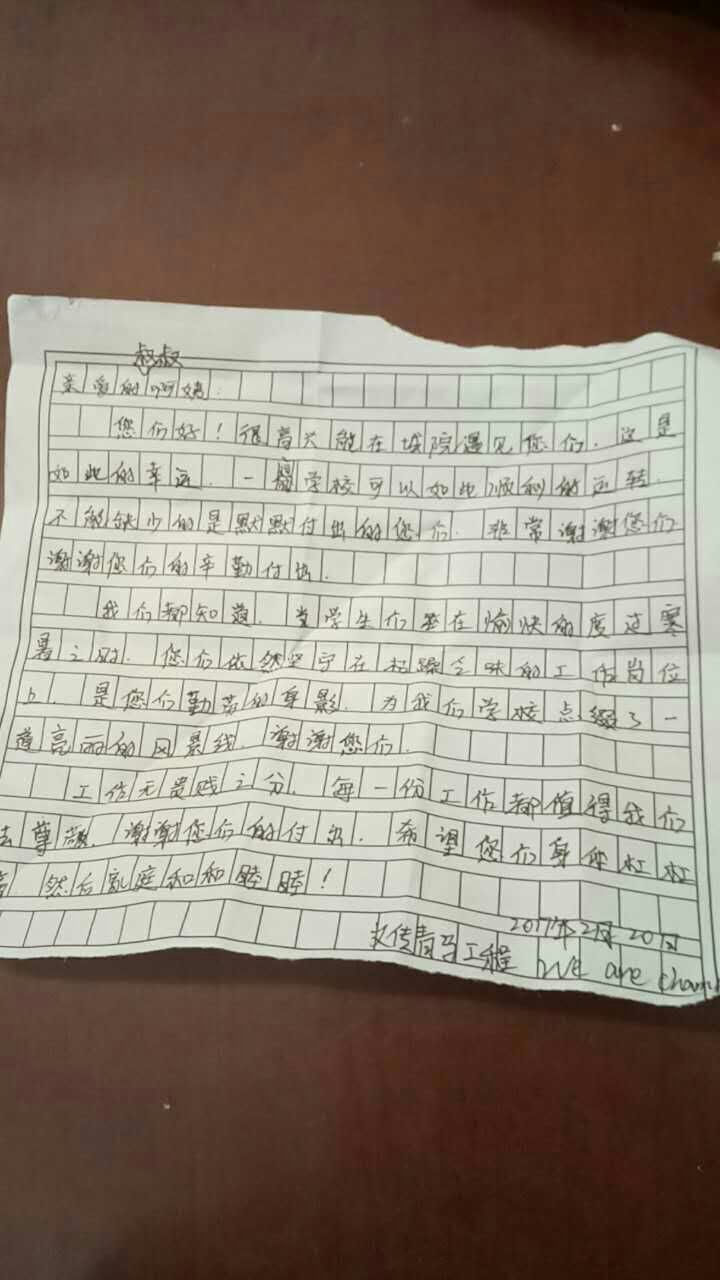 叔叔
亲爱的啊姨：
您们好！很高兴能在城院遇见您们，这是
如此的幸运。一学校可以如此顺利的运转，
不能缺少的是默默付出的您们。非常谢谢您们
谢谢您们的辛勤付出。
我们都知道，当学生们坐在愉快的度过寒
暑之时，您们依然坚守在枯躁乏味的工作岗位
上，是您们勤劳的身影，为我们学校点缀了一
道亮丽的风景线，谢谢您们。
工作无贵贱之分，每一份工作都值得我们
去尊敬，谢谢您们的付出，希望您们身体杠杠
，然后家庭和和睦睦！
2017年2月20日
文传青马工程 We are